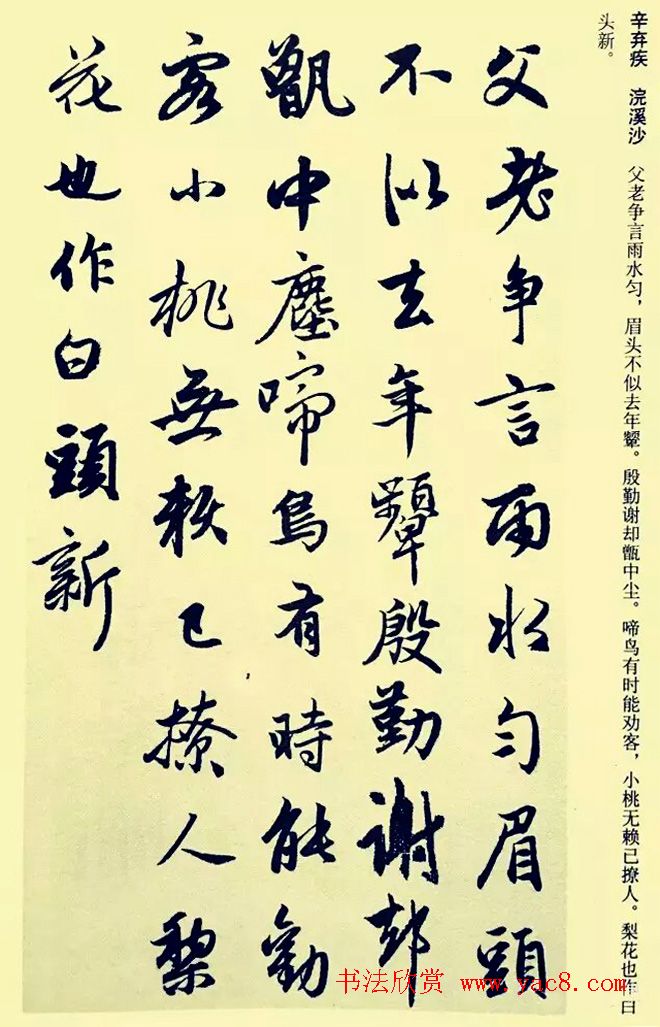 辛弃疾　浣溪沙　父老争言雨水匀，眉头不似去年颦。殷勤谢却甑中尘。啼鸟有时能劝客，小桃无赖已撩人。梨花也作白
头新。
父老爭言雨水勻眉頭
不似去年顰殷勤謝却
甑中塵啼鳥有時能勸
客小桃無賴已撩人梨
花也作白頭新
书法欣赏 www.yac8.com